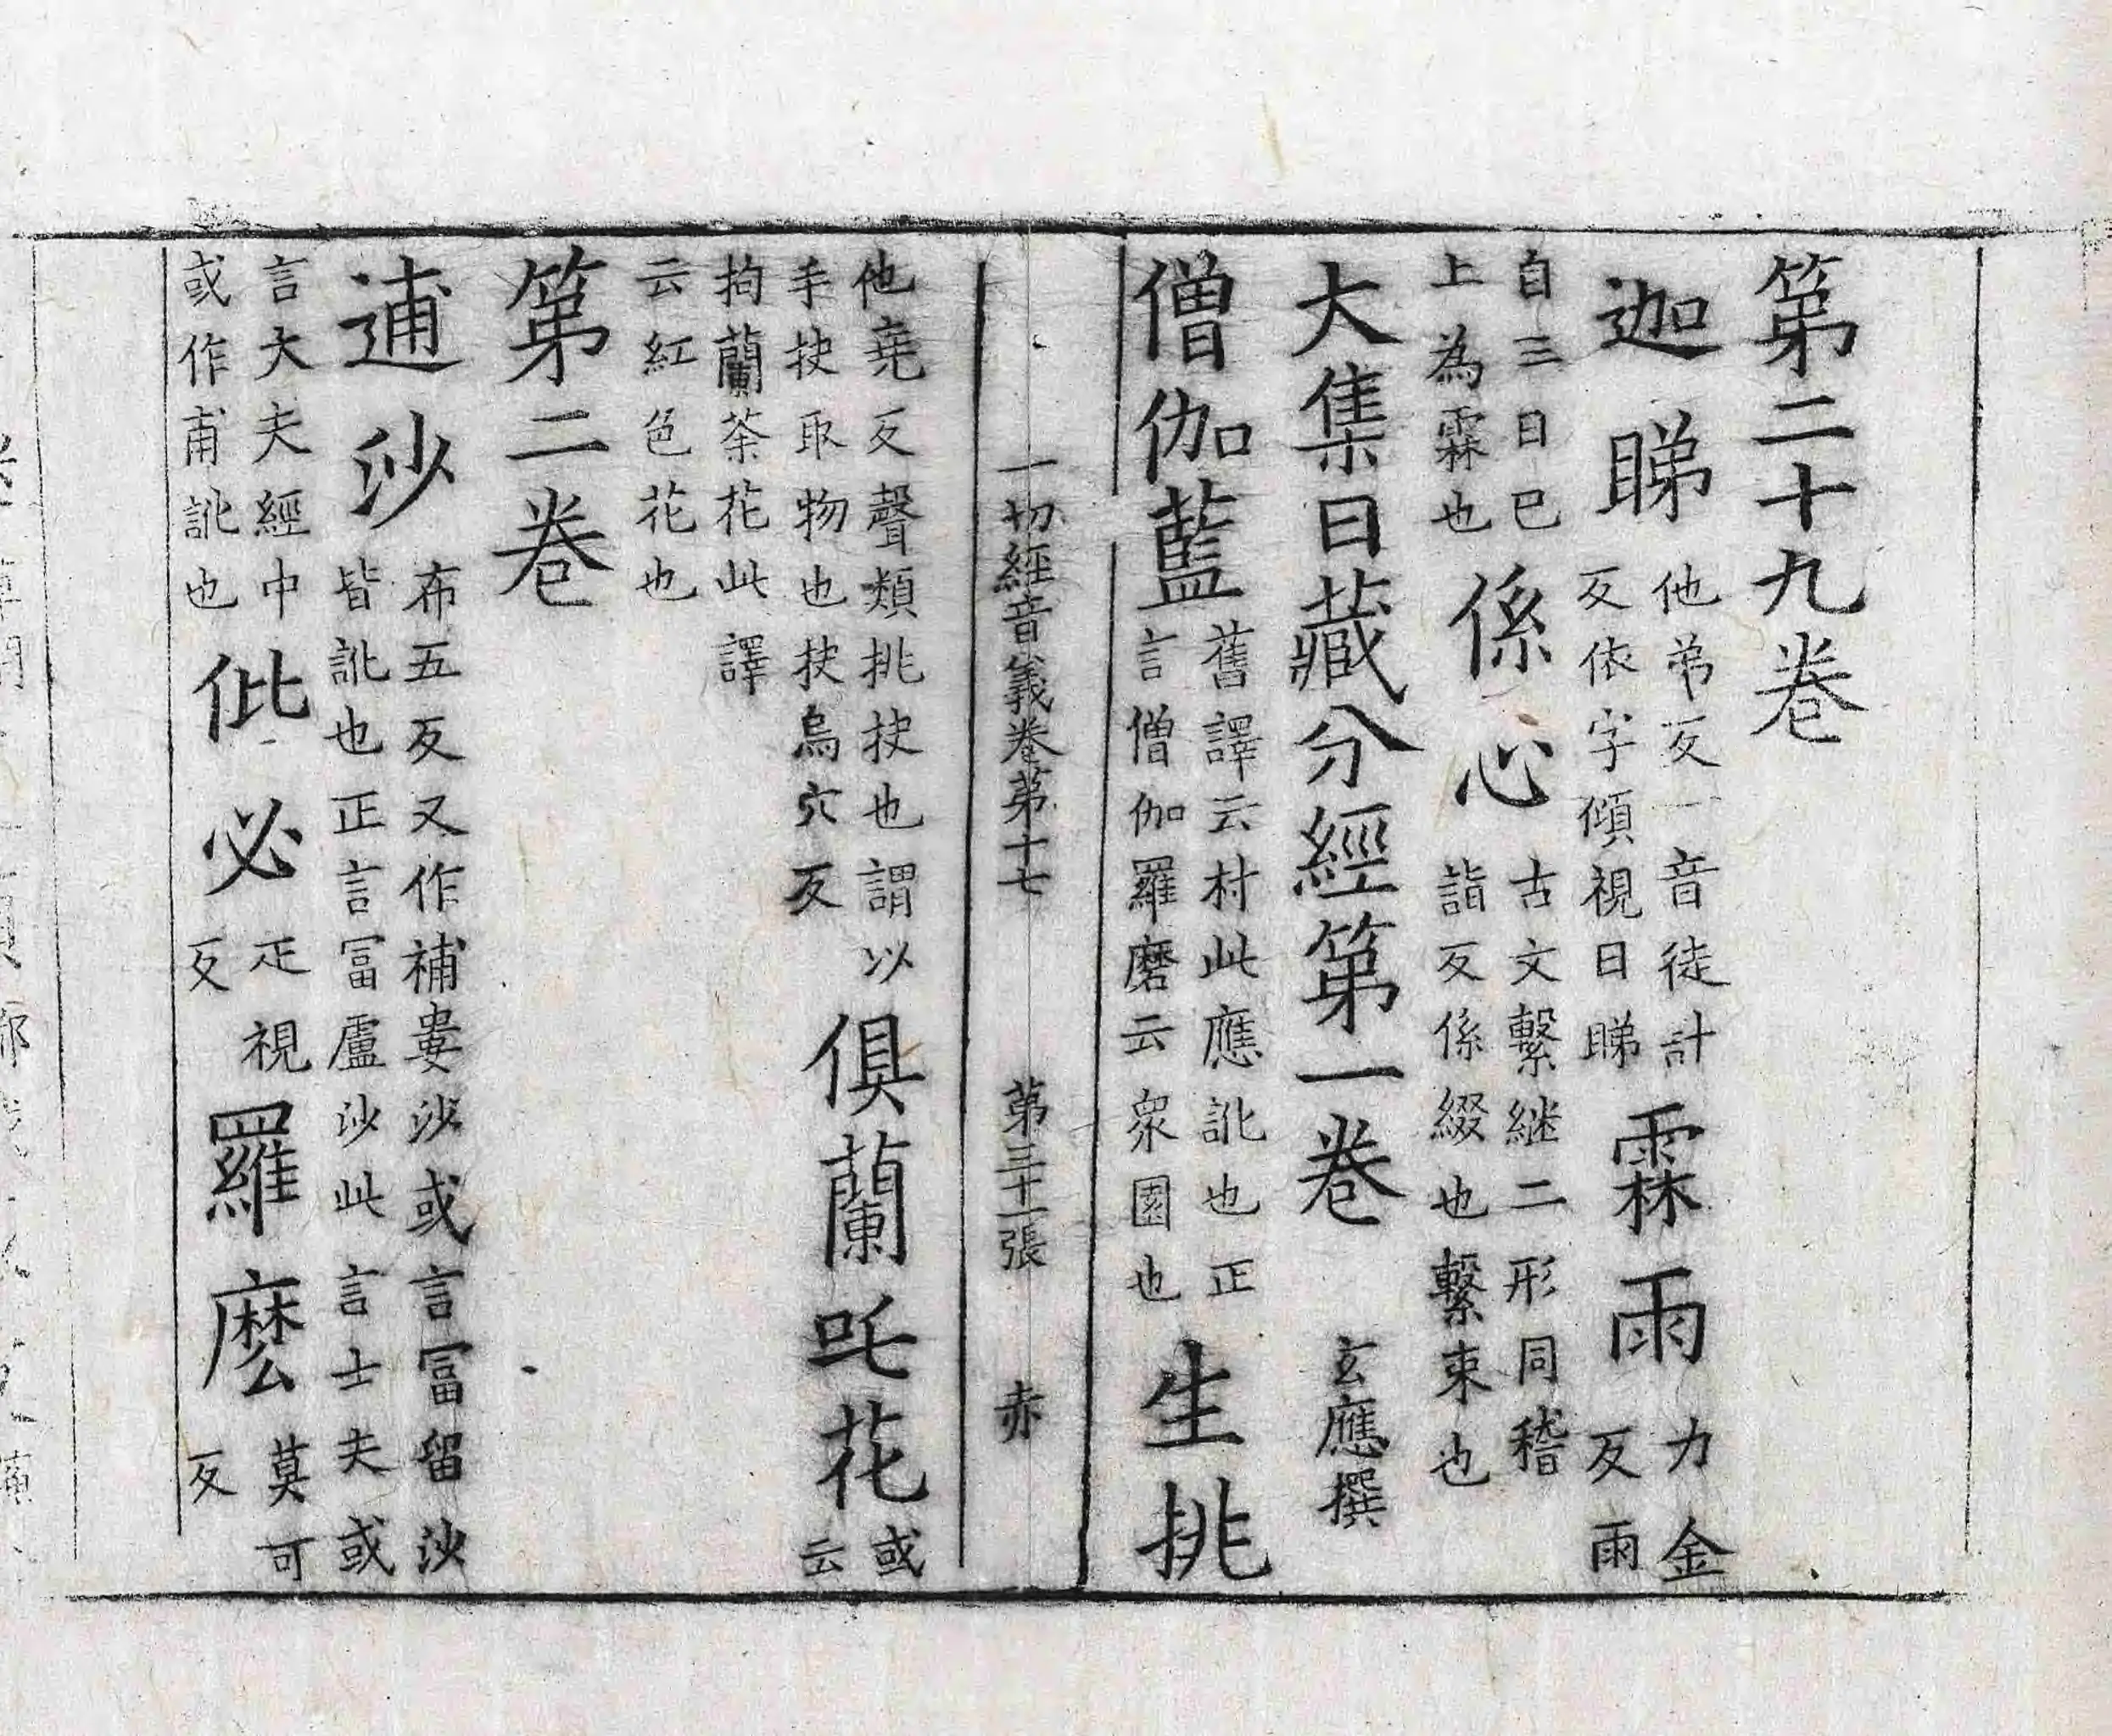 第二十九卷
迦睇他弟反一音徒計反依字傾視曰睇霖雨力金反雨
自三日巳上為霖也係心古文繫継二形同稽詣反係綴也繫束也
大集日藏分經第一卷 玄應撰
僧伽藍舊譯云村此應訛也正言僧伽羅磨云衆園也生挑
一切經音義卷第十七 第三十一張 赤
他堯反聲類挑抉也謂以手抉取物也抉烏穴反俱蘭吒花或云
拘蘭荼花此譯云紅色花也
第二卷
逋沙布五反又作補婁沙或言冨留沙皆訛也正言冨盧沙此言士夫或
言大夫經中或作甫訛也仳必疋視反羅麽莫可反